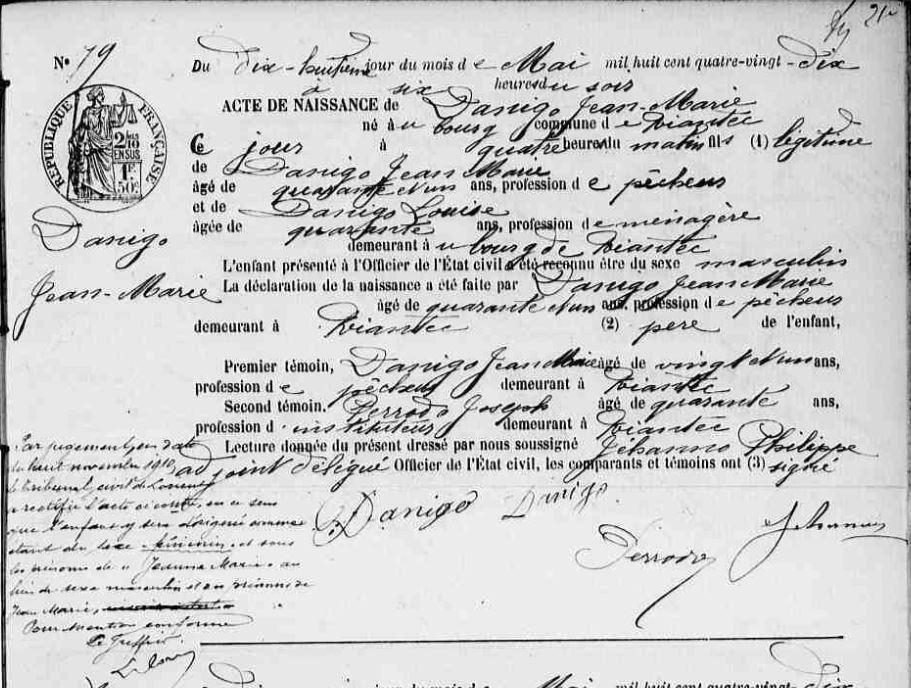 21
N° 79
Du dix-huitième jour du mois de Mai mil huit cent quatre-vingt-dix
à six heures du soir
ACTE DE NAISSANCE de Danigo Jean-Marie
né à u bourg commune de Riantec
Ce jour à quatre heures du matin fils (1) légitime
de Danigo Jean Marie
âgé de quarante et un ans, profession de pêcheur
et de Danigo Louise
âgée de quarante ans, profession de ménagère
demeurant à u bourg de Riantec
L'enfant présenté à l'Officier de l'État civil a été reconnu être du sexe masculin
La déclaration de la naissance a été faite par Danigo Jean Marie
âgé de quarante et un ans, profession de pêcheur
demeurant à Riantec (2) père de l'enfant,
Premier témoin, Danigo Jean Marie âgé de vingt et un ans,
profession de pêcheur demeurant à Riantec
Second témoin, Perrodo Joseph âgé de quarante ans,
profession d instituteur demeurant à Riantec
Lecture donnée du présent dressé par nous soussigné Jéhanno Philippe
adjoint délégué Officier de l'État civil, les comparants et témoins ont (3) signé
Danigo Danigo
Perrodo Jehanno
RÉPUBLIQUE FRANÇAISE
2/10
EN SUS
1F
50c
Danigo
Jean-Marie
Par jugement en date
du huit novembre
le tribunal civil de Lorient
a rectifié l'acte ci-contre, en ce sens
que l'enfant y sera désigné comme
étant du sexe féminin et sous
les prénoms de "Jeanne Marie" au
lieu de sexe masculin et au prénoms de
Jean Marie,
Pour mention conforme
Le Greffier
Du dix jour du mois de Mai mil huit cent quatre-vingt-dix